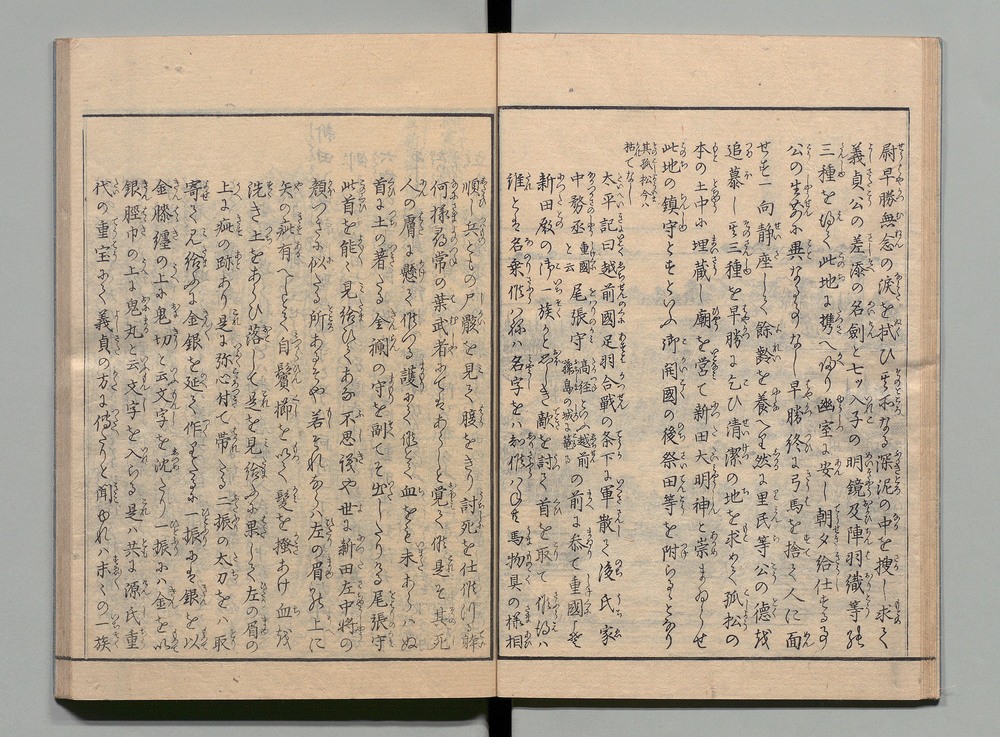 尉早勝無念の涙を拭ひ其不なる深泥の中を捜し求て
義貞公の差添の名劍と七ツ入子の明鏡及陣羽織等の
三種を得て此地に携へ帰り幽室に安し朝夕給仕する事
公の生前に異なる事なし早勝終に弓馬を捨て人に面
せす一向静座して餘齡を養へり然に里民等公の德を
追慕し其三種を早勝に乞ひ清潔の地を求めて孤松の
本の土中に埋蔵し廟を営て新田大明神と崇まゐらせ
此地の鎮守とせしといふ御開國の後祭田等を附らるゝとなり
其孤松今ハ
枯てなし
太平記曰越前國足羽合戰の条下に軍散て後氏家
中務丞重國と云尾張守高経といふ越前の前に参て重國こそ
新田殿の御一族かと覚しき敵を討て首を取て候得ハ
誰とハ名乗候ハねハ名字をハ知候ハねとも馬物具の様相
順し兵ともの尸骸を見て腹をきり討死を仕候つる躰
何様尋常の葉武者にてあらしと覚て候是そ其死
人の膚に懸て候つる護にて候とて血をも未あらハぬ
首に土の著たる金襴の守を副てそ出したりける尾張守
此首を能々見給ひてあな不思議や世に新田左中將の
顔つきに似たる所あるそや若それならハ左の眉の上に
矢の疵有へしとて自鬢櫛を以て髪を掻あけ血を
洗き土をあらひ落して是を見給ふに果して左の眉の
上に疵の跡あり是に弥心付て帯たる二振の太刀をハ取
寄て見給ふに金銀を延て作りたるに一振にハ銀を以
金膝纏の上に鬼切と云文字を沈たり一振にハ金を以
銀脛巾の上に鬼丸と云文字を入らる是ハ共に源氏重
代の重宝にて義貞の方に傳たりと聞ゆれハ末々の一族